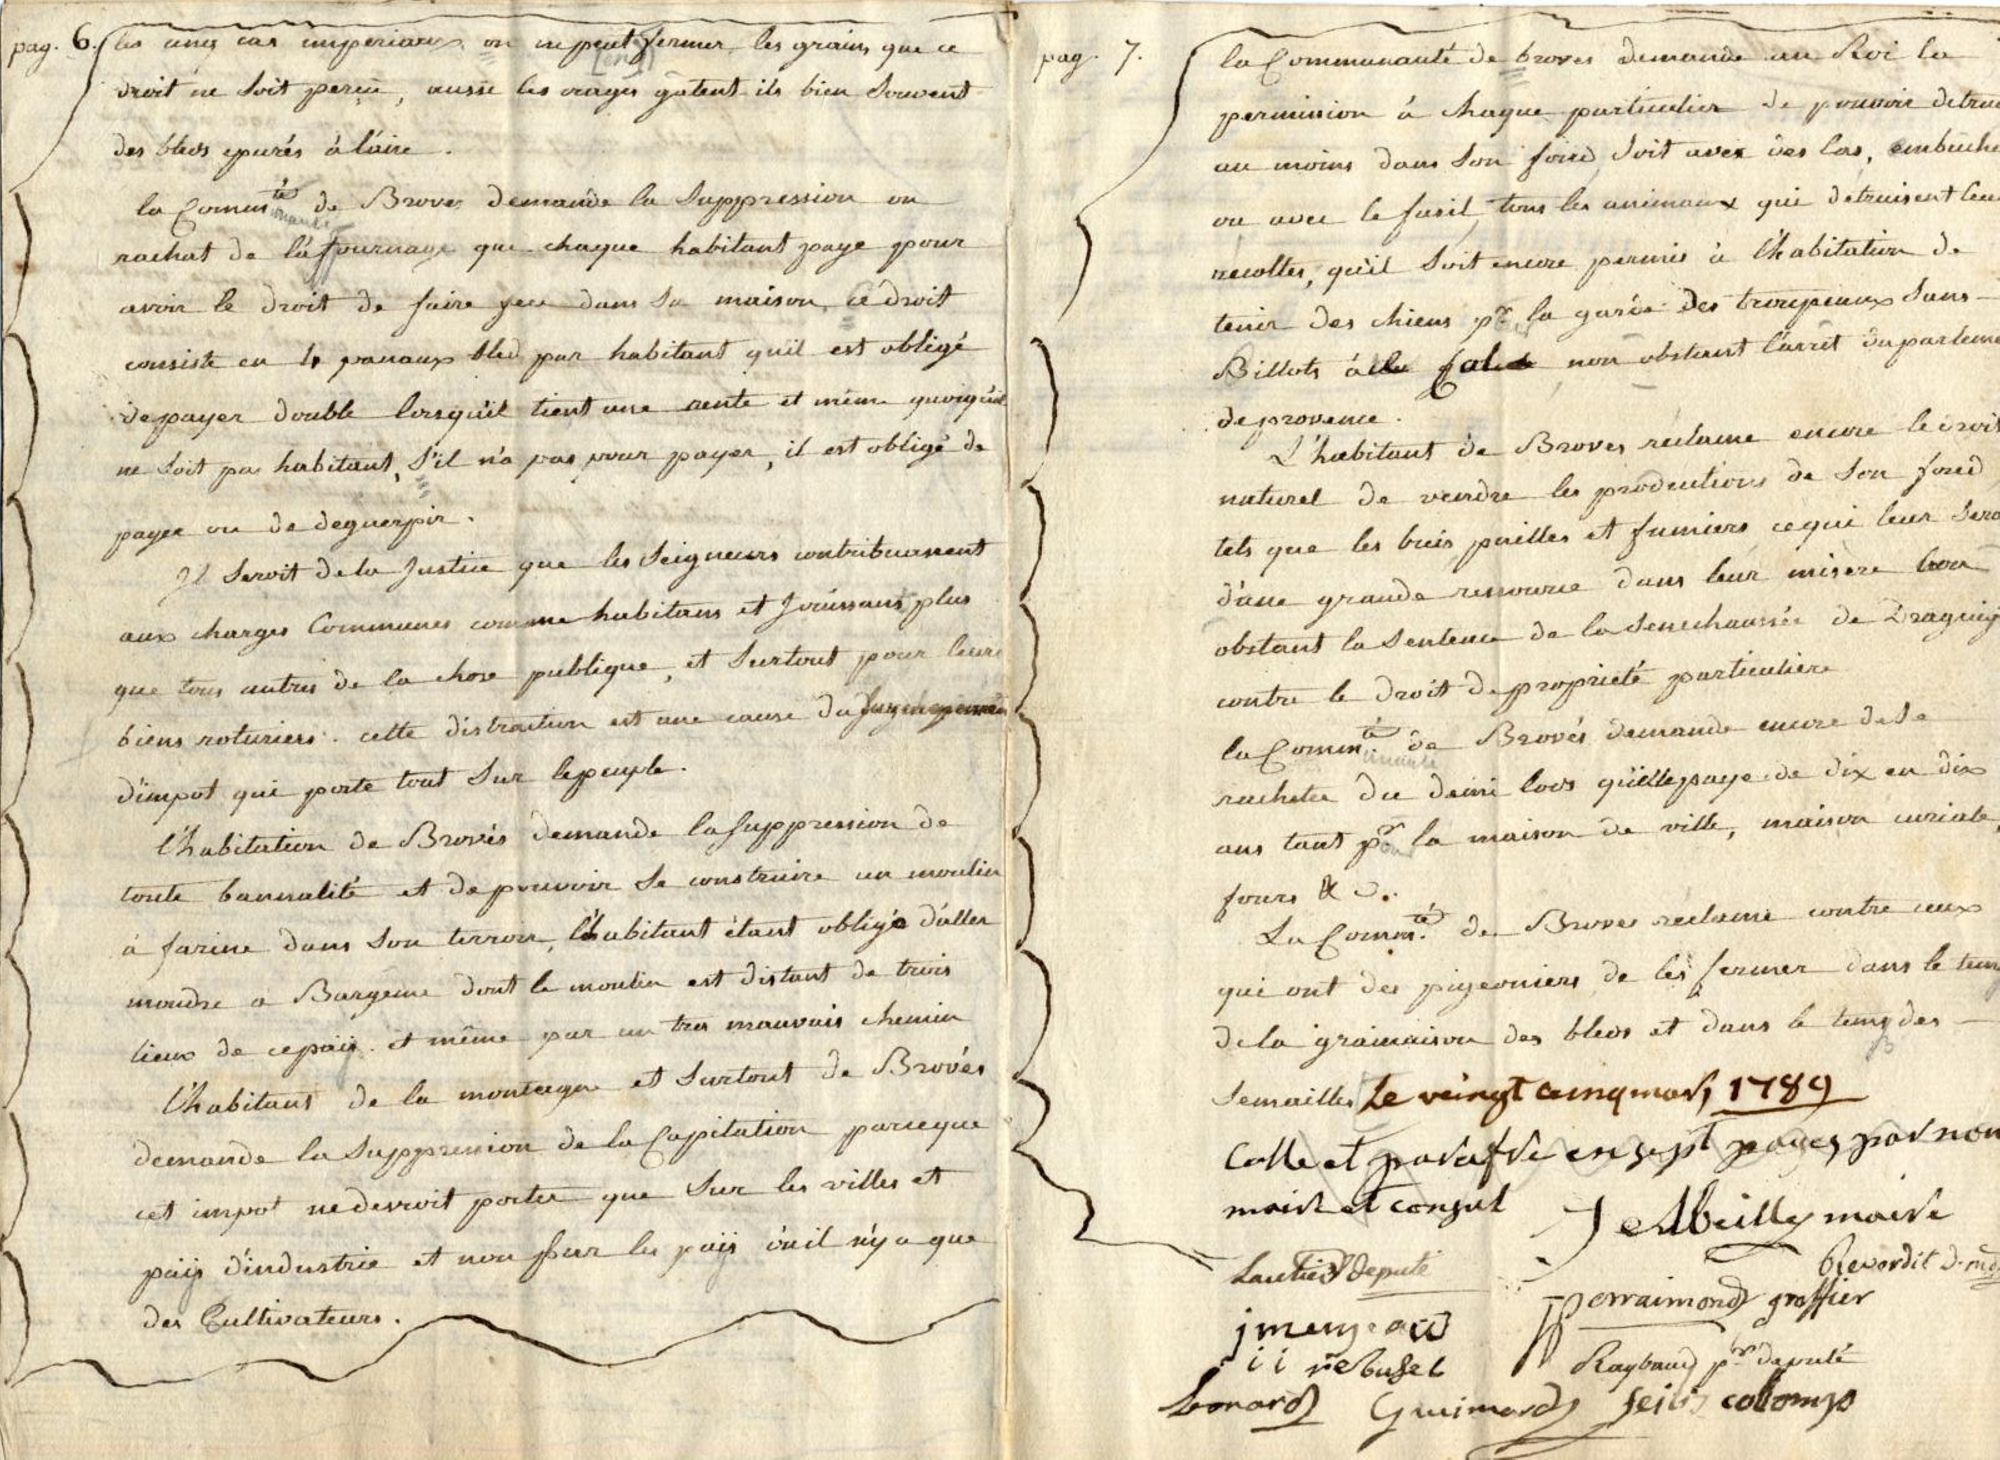 pag. 6. les uns cas imperiaux on ne peut fermer les grains que ce
droit ne soit perçû, aussi les orages gâtent ils bien souvent
des bleds epurés à l'aire.
la Comm.té de Broves demande la suppression ou
rachat de l'affournage que chaque habitant paye pour
avoir le droit de faire feu dans sa maison, ce droit
consiste en 4 panaux bled par habitant qu'il est obligé
de payer double lorsqu'il tient une rente et même quoiqu'il
ne soit pas habitant, s'il n'a pas pour payer, il est obligé de
payer ou de deguerpir.
Il seroit de la justice que les seigneurs contribuassent
aux charges Communes comme habitans et jouissans plus
que tous autres de la chose publique, et surtout pour leurs
biens roturiers. cette distraction est une cause du
d'impot qui porte tout sur le peuple.
l'habitation de Brovés demande la suppression de
toute bannalité et de pouvoir se construire un moulin
à farine dans son terroir, l'habitant étant obligé d'aller
moudre a Bargeme dont le moulin est distant de trois
lieux de ce païs. et même par un tres mauvais chemin
l'habitant de la montagne et surtout de Brovés
demande la suppression de la Capitation parceque
cet impot ne devroit porter que sur les villes et
païs d'industrie et non sur les païs où il n'y a que
des Cultivateurs.
pag. 7. la Communauté de broves demande au Roi la
permission à chaque particulier de pouvoir detrui
au moins dans son fond soit avec des las, embuche
ou avec le fusil, tous les animaux qui detruisent leu
recoltes, qu'il soit encore permis à l'habitation de
tenir des chiens pr la garde des troupeaux sans
Billots à non obstant l'arret du parleme
de provence.
L'habitant de Broves réclame encore le droit
naturel de vendre les productions de son fond
tels que les buis pailles et fumiers ce qui leur sero
d'une grande ressource dans leur misère non
obstant la sentence de la senechaussée de Draguig
contre le droit de proprieté particuliere
la Comm.té de Brovés demande encore de se
racheter du demi lods qu'elle paye de dix en dix
ans tant pr la maison de ville, maison curiale,
fours & c.
La Comm.té de Broves réclame contre ceux
qui ont des pigeoniers de les fermer dans le tems
de la grainaison des bleds et dans le tems des
semailles Le veingt cinq mars 1789
Cotte et parafré en sept pages par nou
maire et consul
J Abeille maire
Lautier deputé
Revordit
perraimond greffier
j mengeaud
ii rebufel
Raybaud pr deputé
honard
Guimard
feilis colomp